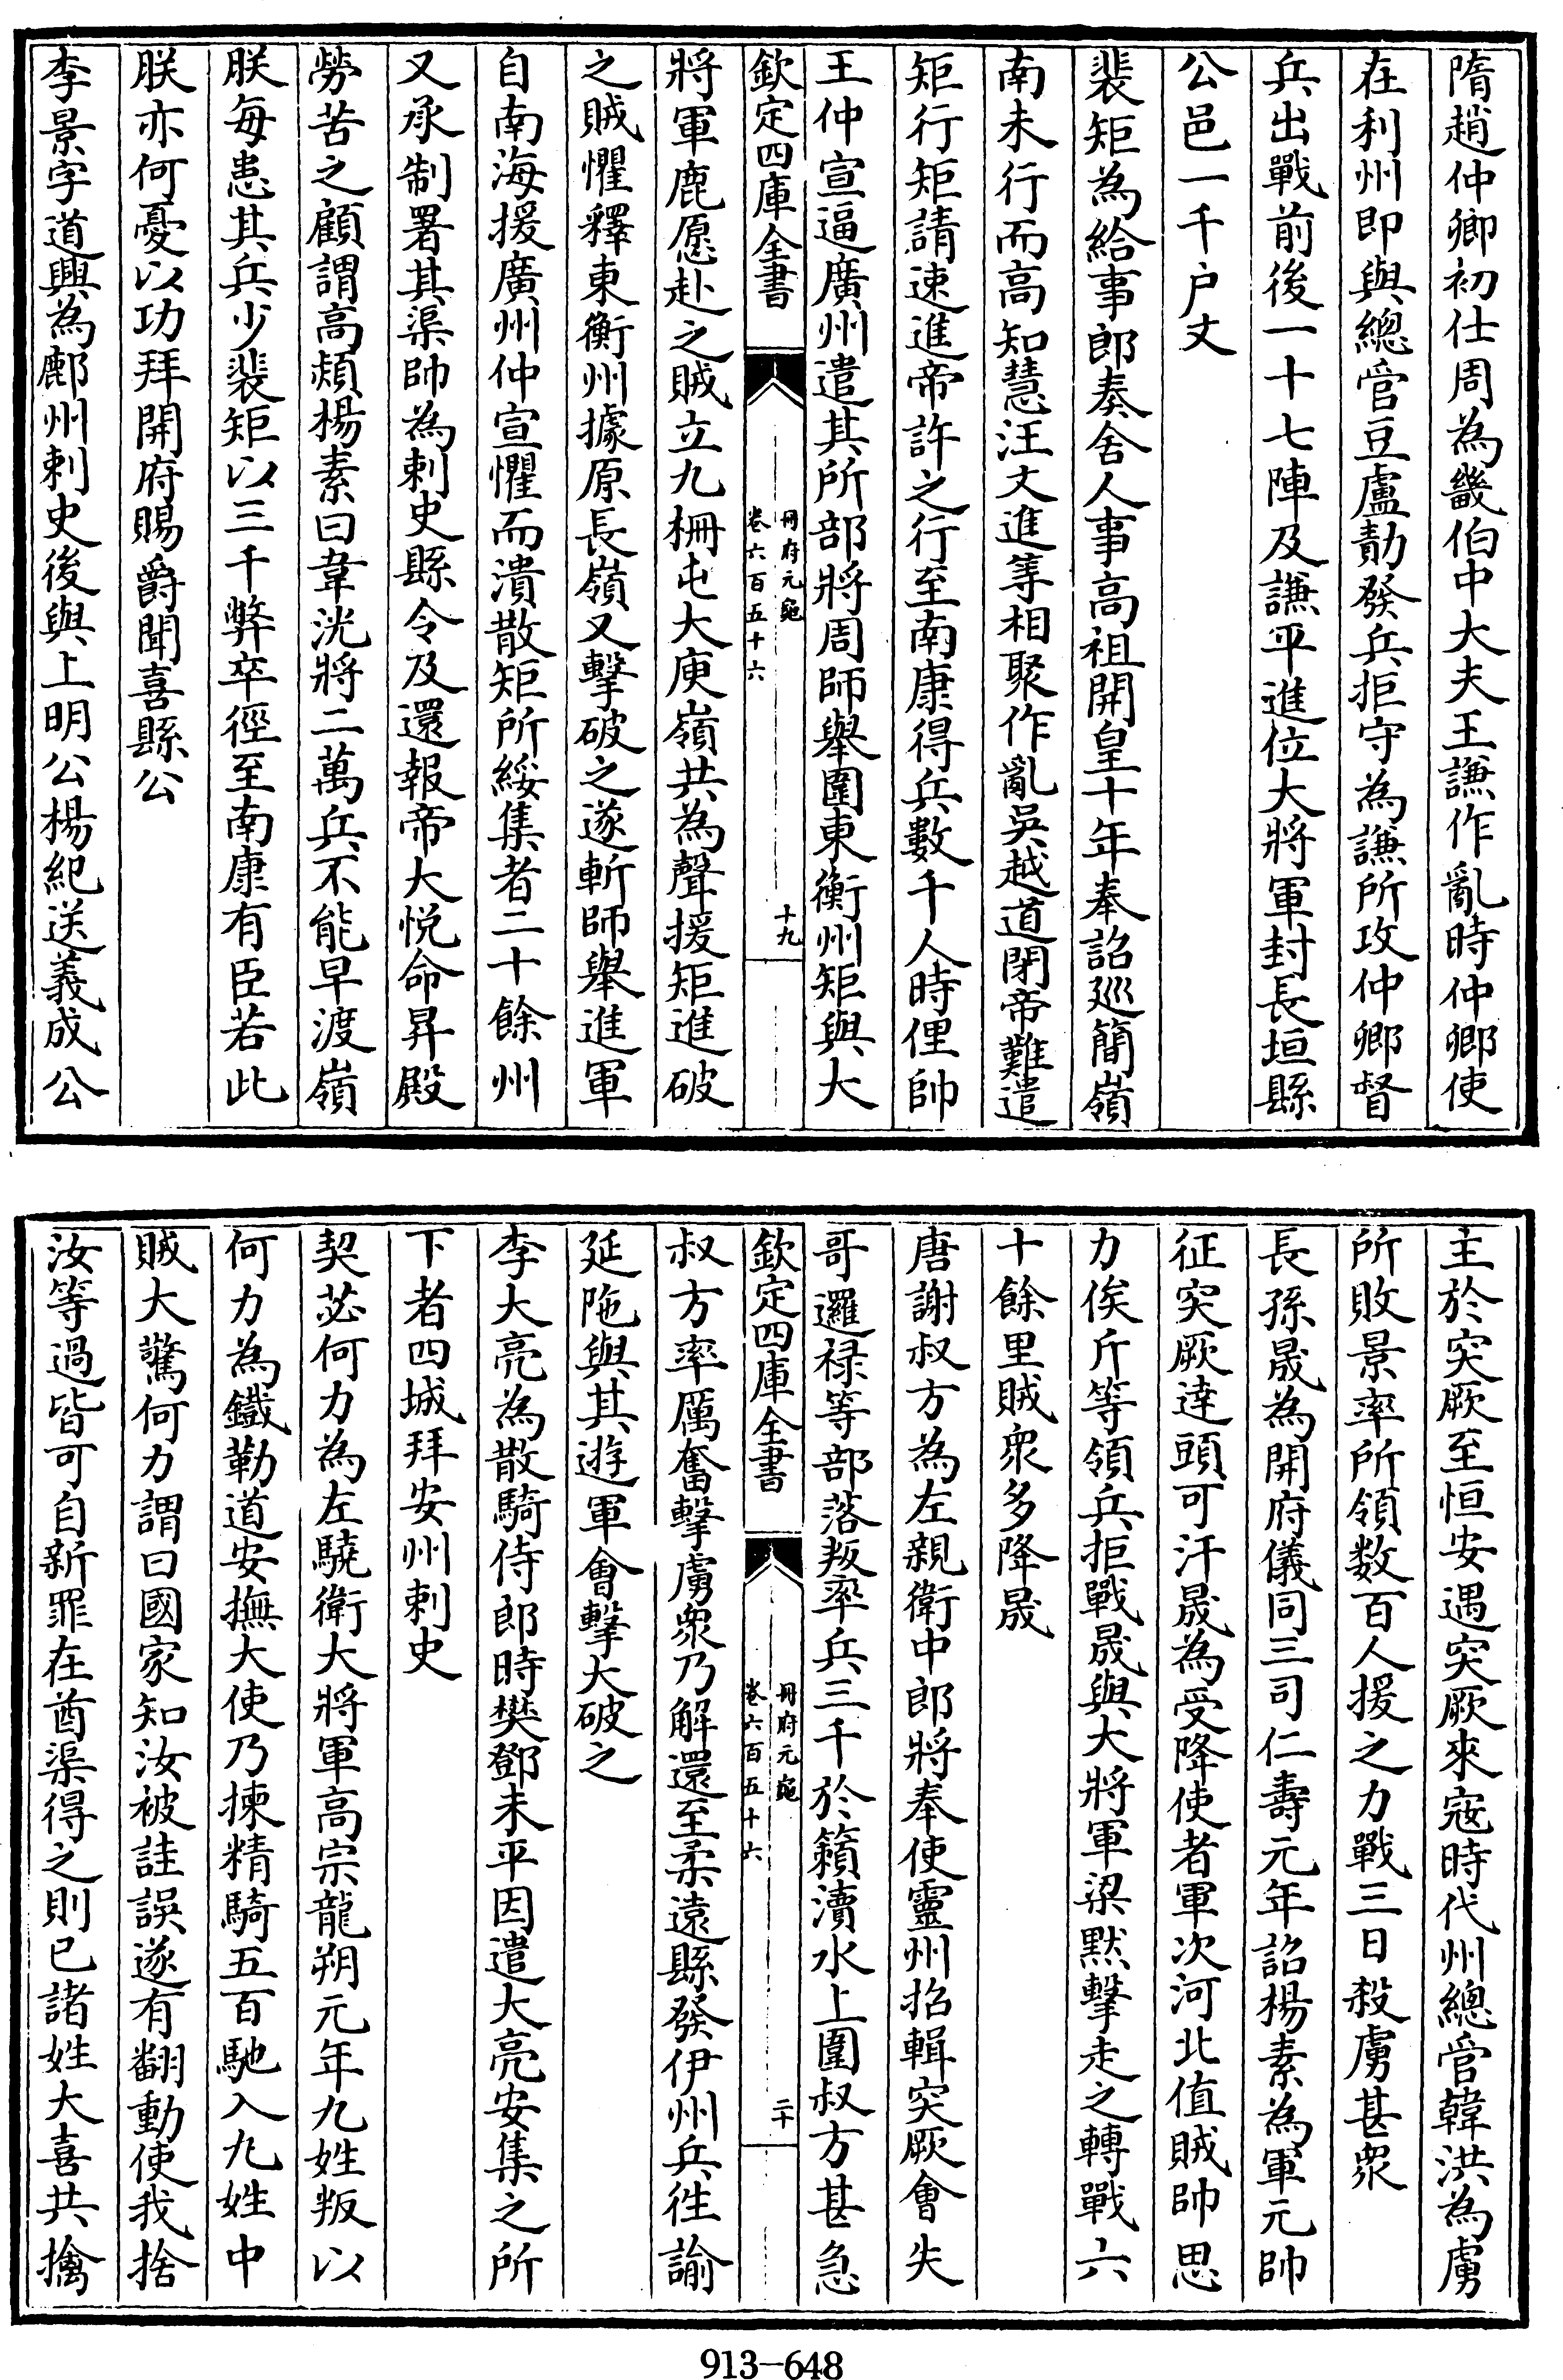 隋趙仲卿初仕周為畿伯中大夫王謙作亂時仲卿使
在利州即與總管豆盧勣發兵拒守為謙所攻仲卿督
兵出戰前後一十七陣及謙平進位大將軍封長垣縣
公邑一千户丈
裴矩為給事郎奏舍人事高祖開皇十年奉詔廵簡嶺
南未行而高知慧汪文進等相聚作亂吳越道閉帝難遣
矩行矩請速進帝許之行至南康得兵數千人時俚帥
王仲宣逼廣州遣其所部將周師舉圍東衡州矩與大
欽定四庫全書
冊府元龜
卷六百五十六
十九
將軍鹿愿赴之賊立九柵屯大庾嶺共為聲援矩進破
之賊懼釋東衡州據原長嶺又擊破之遂斬師舉進軍
自南海援廣州仲宣懼而潰散矩所綏集者二十餘州
又承制署其渠帥為刺史縣令及還報帝大悅命昇殿
勞苦之顧謂高熲楊素曰韋洸將二萬兵不能早渡嶺
朕每患其兵少裴矩以三千弊卒徑至南康有臣若此
朕亦何憂以功拜開府賜爵聞喜縣公
李景字道興為鄜州刺史後與上明公楊紀送義成公
主於突厥至恒安遇突厥來寇時代州總管韓洪為虜
所敗景率所領数百人援之力戰三日殺虜甚衆
長孫晟為開府儀同三司仁壽元年詔楊素為軍元帥
征突厥達頭可汗晟為受降使者軍次河北值賊帥思
力俟斤等領兵拒戰晟與大將軍梁默擊走之轉戰六
十餘里賊衆多降晟
唐謝叔方為左親衛中郎將奉使靈州招輯突厥會失
哥邏禄等部落叛率兵三千於籟瀆水上圍叔方甚急
欽定四庫全書
冊府元龜
卷六百五十六
二十
叔方率厲奮擊虜衆乃解還至柔遠縣發伊州兵徃諭
延陁與其遊軍會擊大破之
李大亮為散騎侍郎時樊鄧未平因遣大亮安集之所
下者四城拜安州刺史
契苾何力為左驍衛大將軍高宗龍朔元年九姓叛以
何力為鐵勒道安撫大使乃揀精騎五百馳入九姓中
賊大驚何力謂曰國家知汝被詿誤遂有翻動使我捨
汝等過皆可自新罪在酋渠得之則已諸姓大喜共擒
913-648